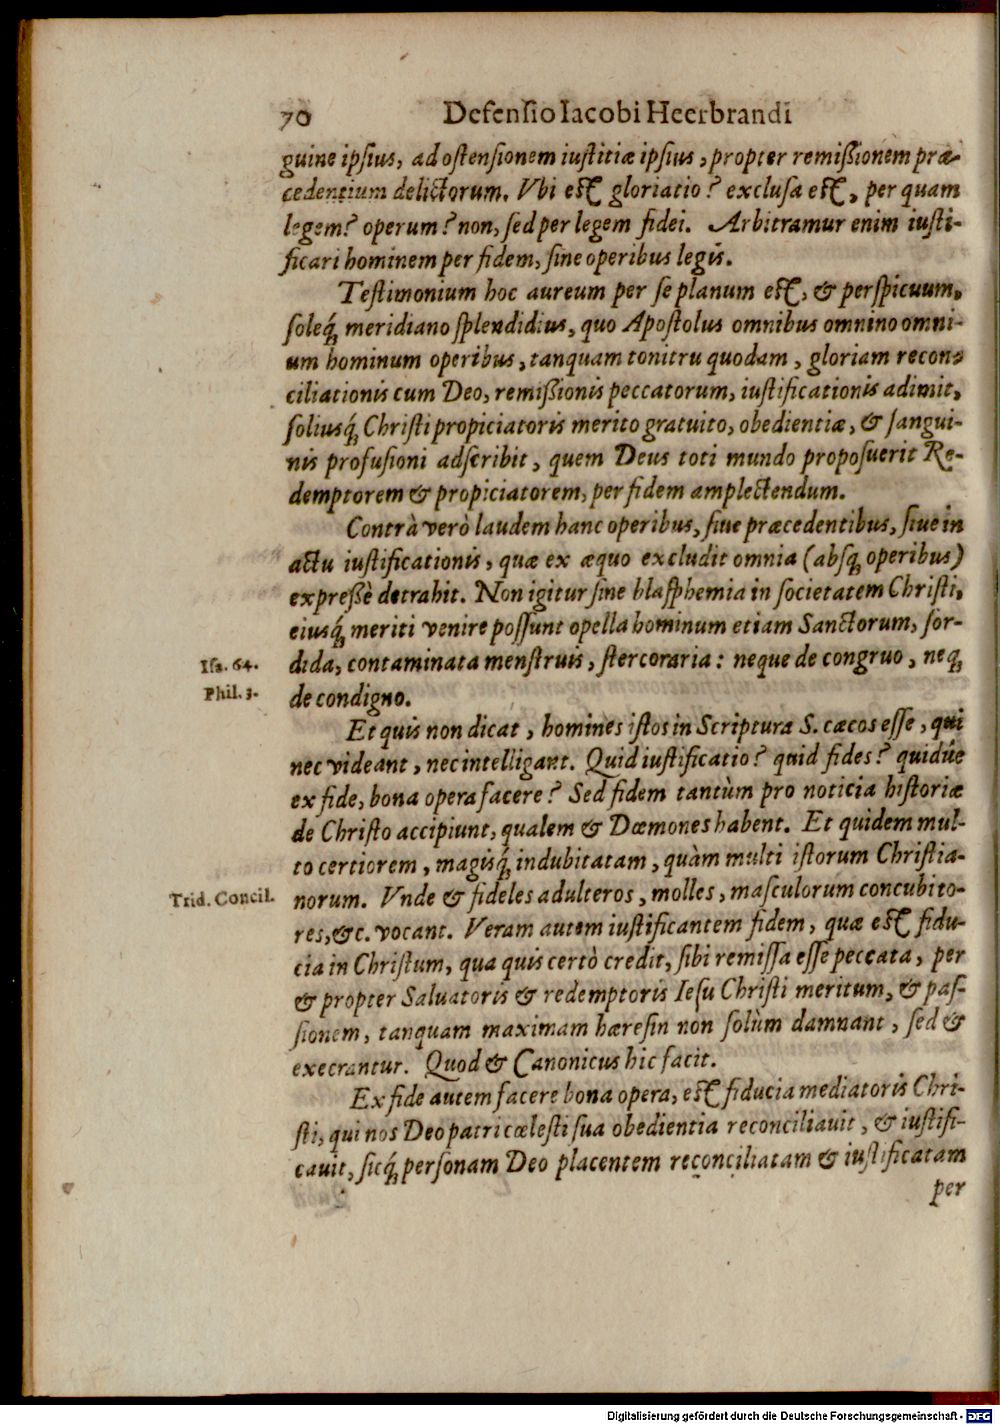 70 Defensio Iacobi Heerbrandi
guine ipsius, ad ostensionem iustitiæ ipsius, propter remißionem præ-
cedentium delictorum. Vbi est gloriatio? exclusa est, per quam
legem? operum? non, sed per legem fidei. Arbitramur enim iusti-
ficari hominem per fidem, sine operibus legis.
Testimonium hoc aureum per se planum est, & perspicuum,
soleq́ meridiano splendidius, quo Apostolus omnibus omnino omni-
um hominum operibus, tanquam tonitru quodam, gloriam recon-
ciliationis cum Deo, remißionis peccatorum, iustificationis adimit,
soliusq́ Christi propiciatoris merito gratuito, obedientiæ, & sangui-
nis profusioni adscribit, quem Deus toti mundo proposuerit Re-
demptorem & propiciatorem, per fidem amplectendum.
Contrà verò laudem hanc operibus, siue præcedentibus, siue in
actu iustificationis, quæ ex æquo excludit omnia (absq operibus)
expreßè detrahit. Non igitur sine blasphemia in societatem Christi,
eiusq́ meriti venire possunt opella hominum etiam Sanctorum, sor-
Isa. 64. dida, contaminata menstruis, stercoraria: neque de congruo, neq
Phil. 3. de condigno.
Et quis non dicat, homines istos in Scriptura S. cæcos esse, qui
nec videant, nec intelligant. Quid iustificatio? quid fides? quidúe
ex fide, bona opera facere? Sed fidem tantùm pro noticia historiæ
de Christo accipiunt, qualem & Dæmones habent. Et quidem mul-
to certiorem, magisq́ indubitatam, quàm multi istorum Christia-
Trid. Concil. norum. Vnde & fideles adulteros, molles, masculorum concubito-
res, &c. vocant. Veram autem iustificantem fidem, quæ est fidu-
cia in Christum, qua quis certò credit, sibi remissa esse peccata, per
& propter Saluatoris & redemptoris Iesu Christi meritum, & pas-
sionem, tanquam maximam hæresin non solùm damnant, sed &
execrantur. Quod & Canonicus hic facit.
Ex fide autem facere bona opera, est fiducia mediatoris Chri-
sti, qui nos Deo patri cœlesti sua obedientia reconciliauit, & iustifi-
cauit, sicq́ personam Deo placentem reconciliatam & iustificatam
per
Digitalisierung gefördert durch die Deutsche Forschungsgemeinschaft - DFG